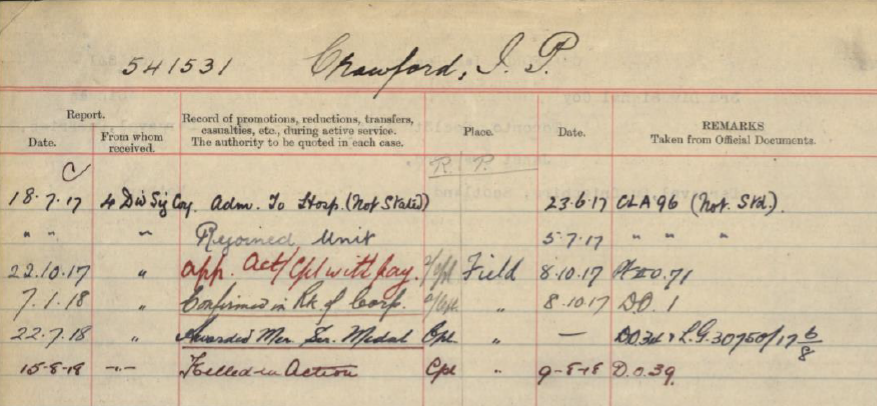 541531 Crawford, I. P.
Report. Record of promotions, reductions, transfers, casualties, etc., during active service. The authority to be quoted in each case. Place. Date. REMARKS Taken from Official Documents.
Date. From whom received.
R. P.
18.7.17 4 Div Sig Coy. Adm. To Hosp. (Not Stated) 23.6.17 CLA 96 (Not. Std.).
" " " Rejoined Unit 5.7.17 " " "
22.10.17 " App. Act/Cpl with pay. a/Cpl Field 8.10.17 71
7.1.18 " Confirmed in Rk of Corp. a/Cpl. " 8.10.17 DO. 1
22.7.18 " Awarded Mer. Ser. Medal Cpl. " — L.G. 30750/17 6/8
15-8-18 -"- Killed in Action Cpl " 9-8-18 D.O. 39.